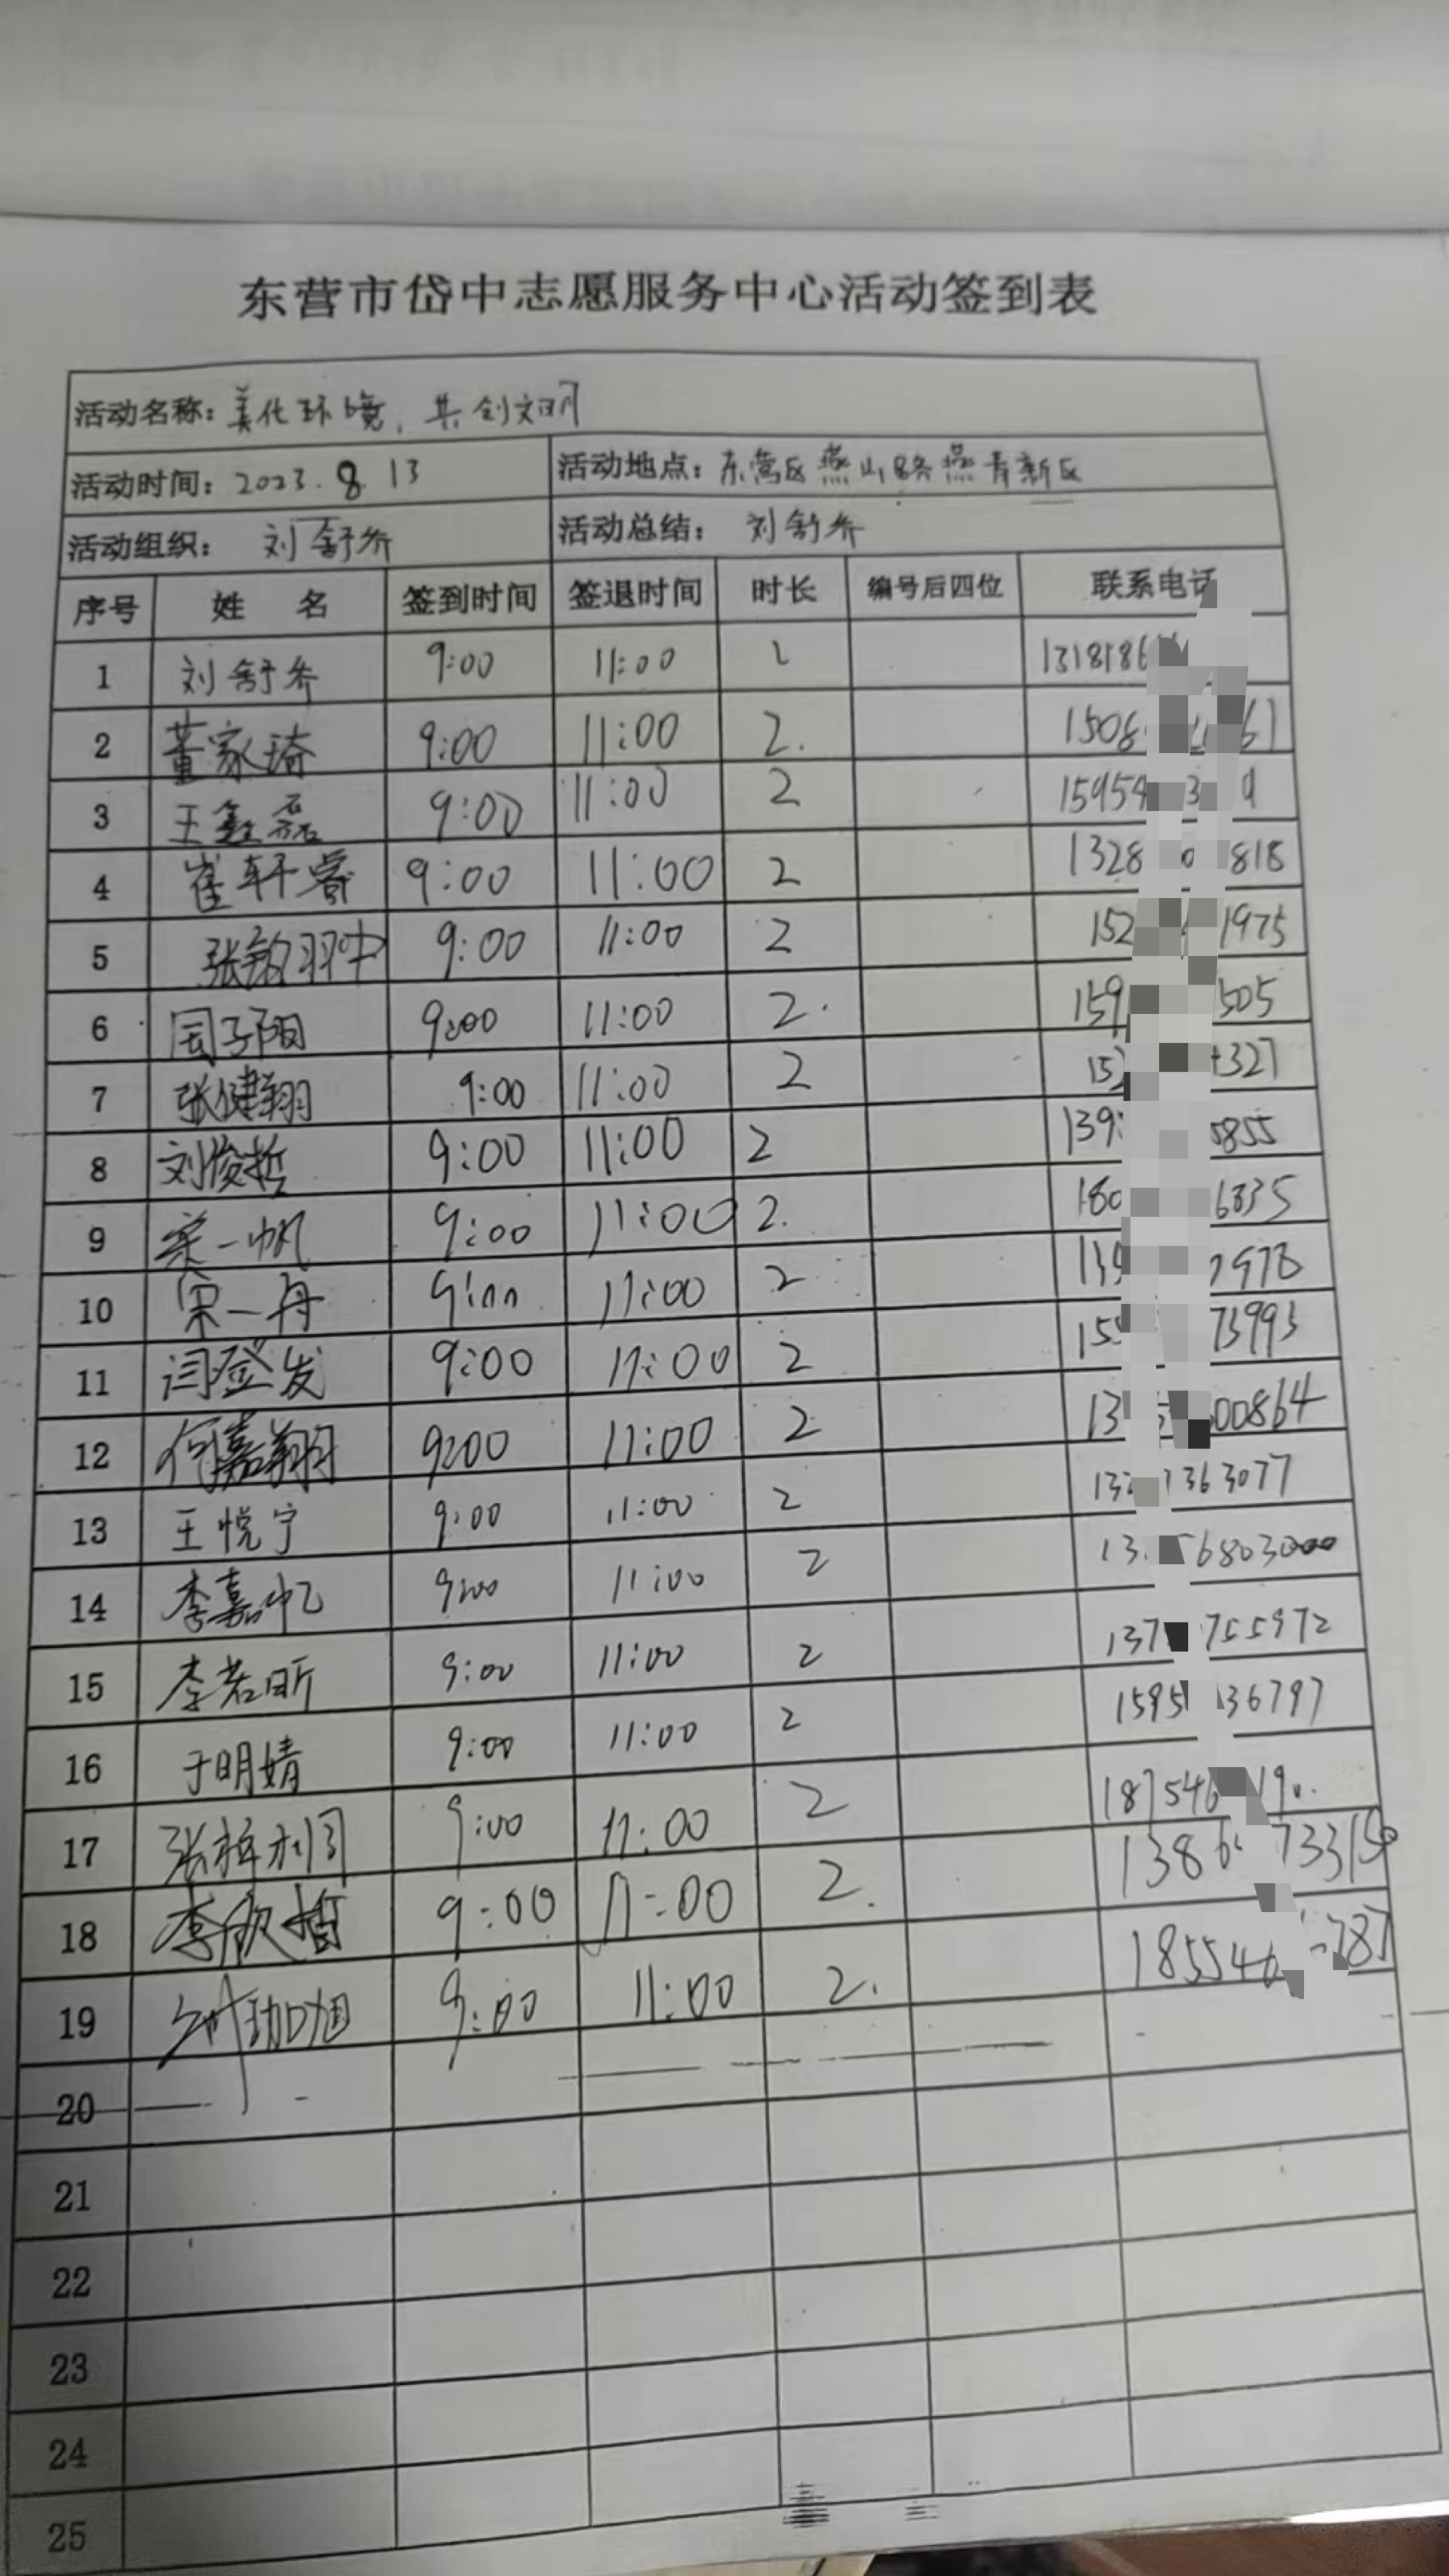 东营市岱中志愿服务中心活动签到表
活动名称: 美化环境, 共创文明
活动时间: 2023.8.13 活动地点: 东营区燕山路燕青新区
活动组织: 刘舒乔 活动总结: 刘舒乔
序号 姓 名 签到时间 签退时间 时长 编号后四位 联系电话
1 刘舒乔 9:00 11:00 2 131818
2 董家琦 9:00 11:00 2. 1508 61
3 王鑫磊 9:00 11:00 2 15954 3 9
4 崔轩睿 9:00 11:00 2 1328 0 818
5 9:00 11:00 2 152 1975
6 周子阳 9:00 11:00 2. 159 505
7 张健翔 9:00 11:00 2 152 327
8 刘俊哲 9:00 11:00 2 139 855
9 宋一帆 9:00 11:00 2. 180 6835
10 宋一丹 9:00 11:00 2 139 978
11 闫登发 9:00 11:00 2 155 73993
12 何嘉翔 9:00 11:00 2 13 00864
13 王悦宁 9:00 11:00 2 132 363077
14 李嘉忆 9:00 11:00 2 13 6803000
15 李若昕 9:00 11:00 2 137 755972
16 于明婧 9:00 11:00 2 1595 36797
17 9:00 11:00 2 187546 19
18 9:00 11:00 2. 138 73315
19 9:00 11:00 2. 185546 787
20
21
22
23
24
25